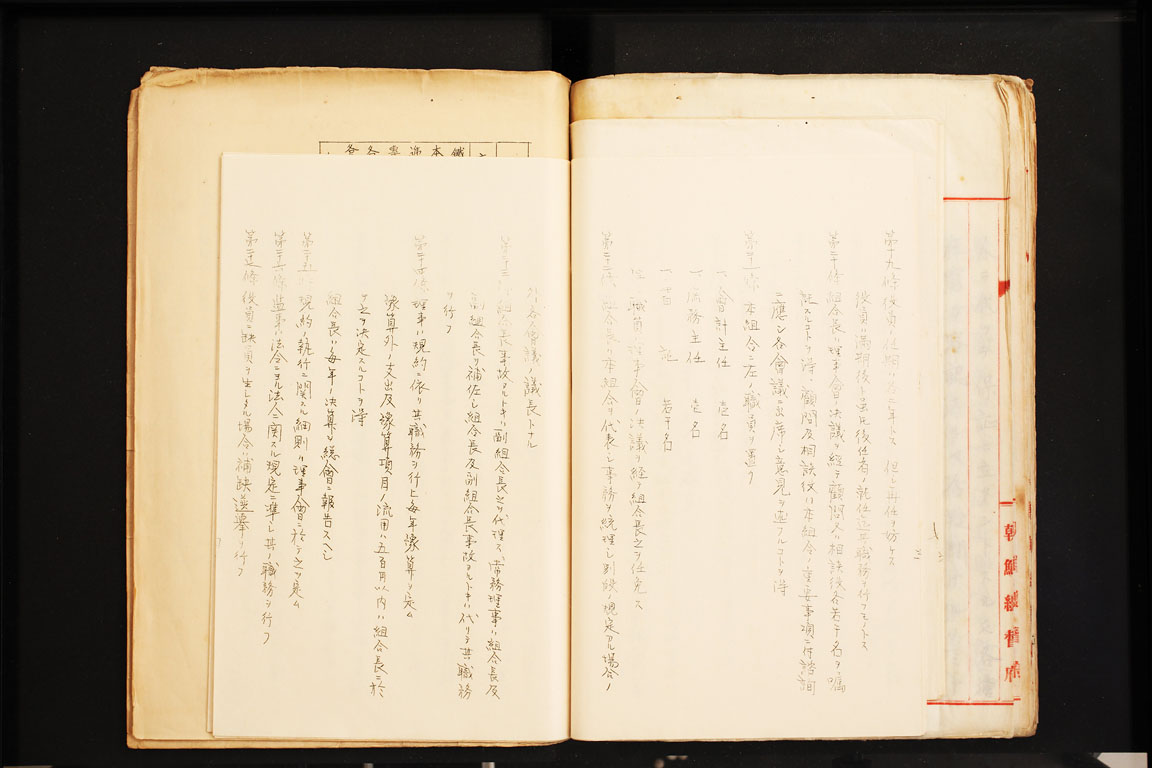 第十九條 役員ノ任期ハ ニシテ 但シ再任ヲ妨ケス
役員ハ滿期後ト雖モ後任者ノ就任迄其職務ヲ行フモノトス
第二十條 組合長ハ理事會ノ決議ヲ經テ顧問又ハ相談役各若干名ヲ囑
託スルコトヲ得 顧問及相談役ハ本組合ノ重要事項ニ付諮詢
ニ應シ各會議ニ出席シ意見ヲ述フルコトヲ得
第二十一條 本組合ニ左ノ職員ヲ置ク
一 會計主任 壱名
一 庶務主任 壱名
一 書記 若干名
職員ハ理事會ノ決議ヲ經テ組合長之ヲ任免ス
第二十二條 組合長ハ本組合ヲ代表シ事務ヲ統理シ別段ノ規定アル場合ノ
外各會議ノ議長トナル
第二十三條 組合長事故アルトキハ副組合長之ヲ代理ス 常務理事ハ組合長及
副組合長ヲ補佐シ組合長及副組合長事故アルトキハ代リテ其職務
ヲ行フ
第二十四條 理事ハ規約ニ依リ其職務ヲ行ヒ每年豫算ヲ定ム
豫算外ノ支出及豫算項目ノ流用ハ五百円以内ハ組合長ニ於
テ之ヲ決定スルコトヲ得
組合長ハ每年ノ決算ヲ総會ニ報告スヘシ
第二十五條 規約ノ執行ニ関スル細則ハ理事會ニ於テ之ヲ定ム
第二十六條 監事ハ法令ニヨル法令ニ関スル規定ニ準シ其ノ職務ヲ行フ
第二十七條 役員ニ缺員ヲ生シタル場合ハ補缺選擧ヲ行フ
朝鮮總督府